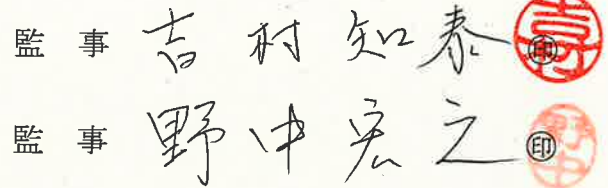 監事 吉村知泰 ㊞
監事 野中宏之 ㊞